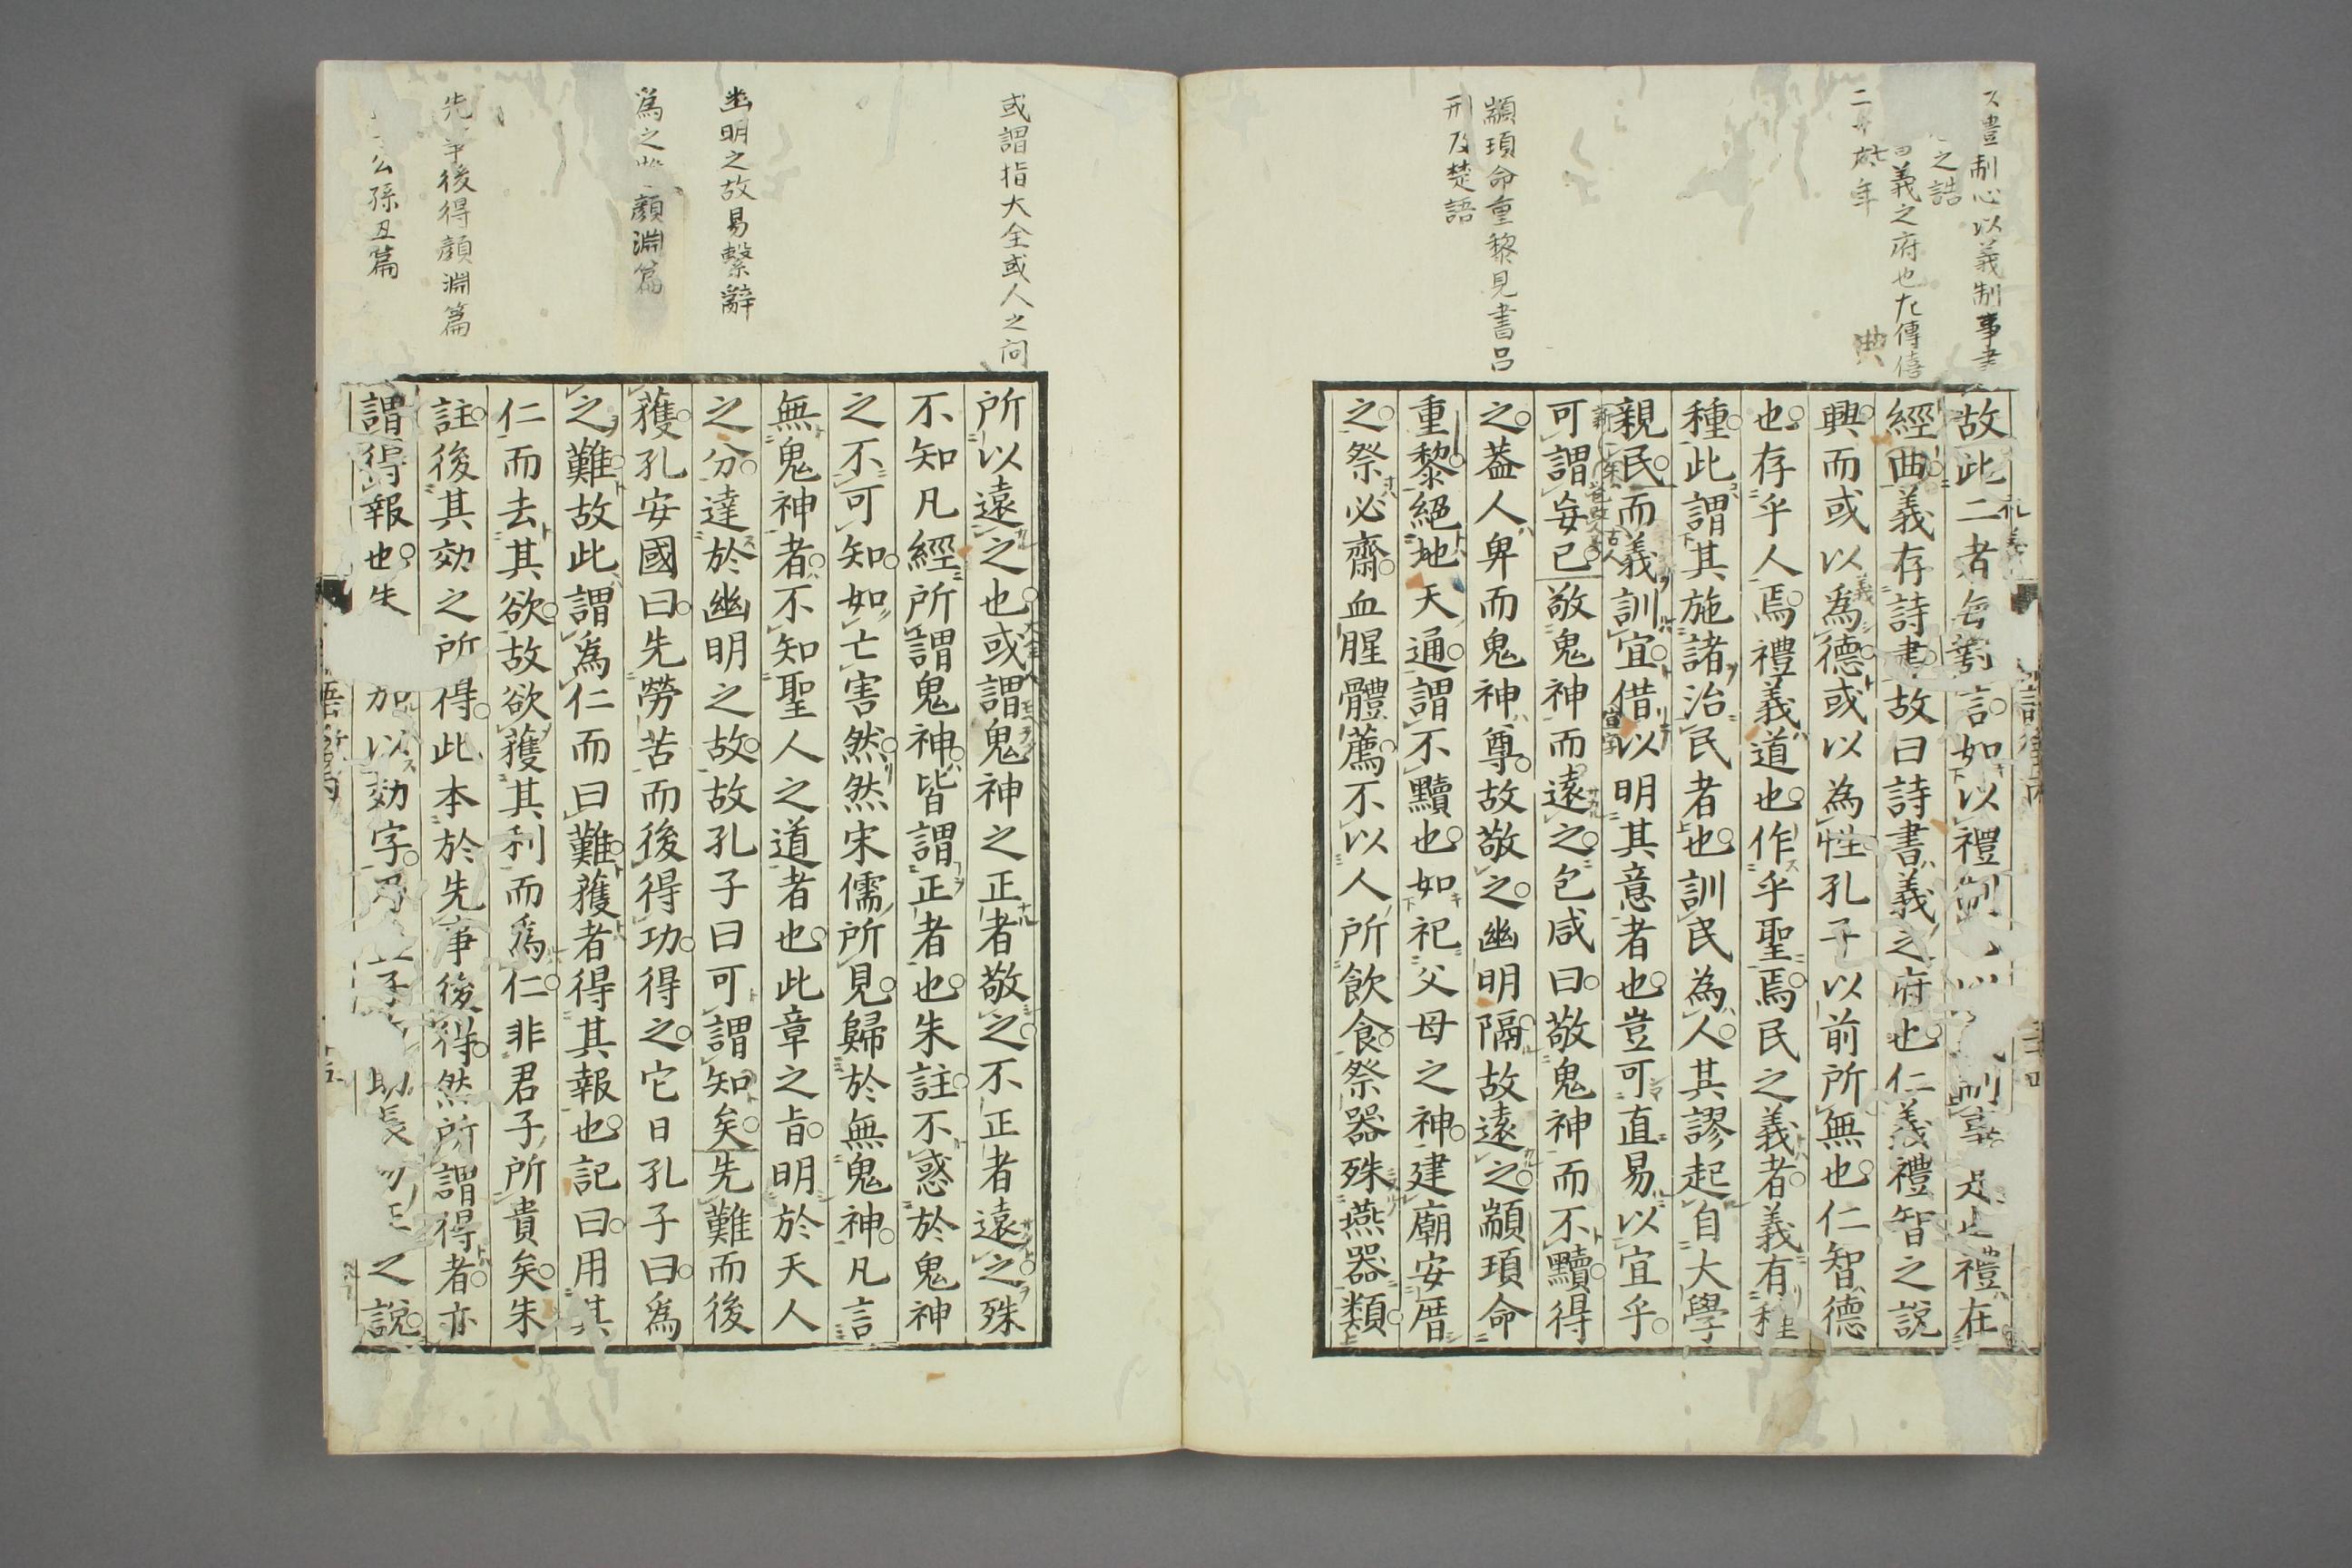 以禮制心以義制事書
之誥
義之府也左傳僖
二十七年
顓頊命重黎見書呂
刑及楚語
故此二者每對言如以禮制心以義制事是也禮在
經曲義存詩書故曰詩書義之府也仁義禮智之說
興而或以爲德或以為性孔子以前所無也仁智德
也存乎人焉禮義道也作乎聖焉民之義者義有種
種此謂其施諸治民者也訓民為人其謬起自大學
親民而義訓宜借以明其意者也豈可直易以宜乎
可謂妄已敬鬼神而遠之包咸曰敬鬼神而不黷得
之葢人卑而鬼神尊故敬之幽明隔故遠之顓頊命
重黎絕地天通謂不黷也如祀父母之神建廟安厝
之祭必齋血腥體薦不以人所飲食祭器殊燕器類
或謂指大全或人之問
幽明之故易繫辭
為之 顏淵篇
先事後得顏淵篇
公孫丑篇
所以遠之也或謂鬼神之正者敬之不正者遠之殊
不知凡經所謂鬼神皆謂正者也朱註不惑於鬼神
之不可知如亡害然然宋儒所見歸於無鬼神凡言
無鬼神者不知聖人之道者也此章之旨明於天人
之分達於幽明之故故孔子曰可謂知矣先難而後
獲孔安國曰先勞苦而後得功得之它日孔子曰爲
之難故此謂爲仁而曰難獲者得其報也記曰用其
仁而去其欲故欲獲其利而爲仁非君子所貴矣朱
註後其効之所得此本於先事後得然所謂得者亦
謂得報也朱 加以効字乃 助長 正之說